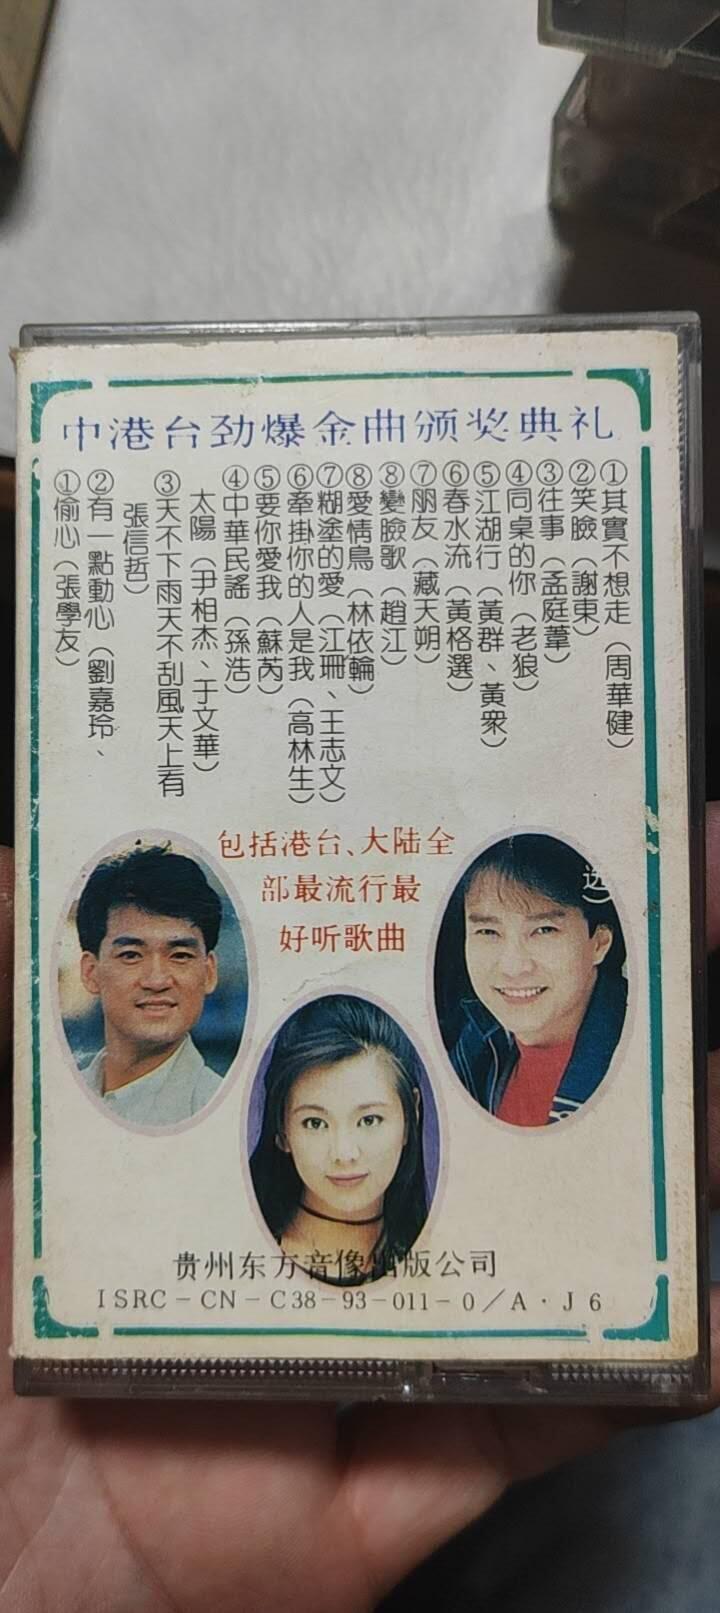 中港台劲爆金曲颁奖典礼
①其實不想走（周華健）
②笑臉（謝東）
③往事（孟庭葦）
④同桌的你（老狼）
⑤江湖行（黃群、黃衆）
⑥春水流（黃格選）
⑦朋友（藏天朔）
⑧變臉歌（趙江）
①偷心（張學友）
②有一點動心（劉嘉玲、
張信哲）
③天不下雨天不刮風天上有
太陽（尹相杰、于文華）
④中華民謠（孫浩）
⑤要你愛我（蘇芮）
⑥牽掛你的人是我（高林生）
⑦糊塗的愛（江珊、王志文）
⑧愛情鳥（林依輪）
包括港台、大陆全
部最流行最
好听歌曲
选）
贵州东方音像出版公司
ISRC－CN－C38－93－011－0／A·J6